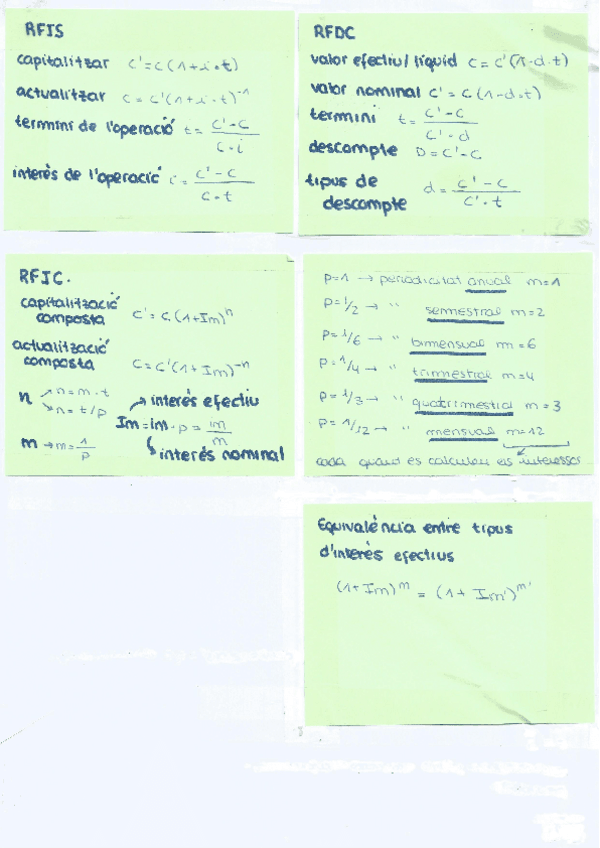 RFIS
capitalitzar C'=C(1+i·t)
actualitzar C=C'(1+i·t)⁻¹
termini de l'operació t= C'-C / C·i
interès de l'operació i= C'-C / C·t
RFDC
valor efectiu/líquid C=C'(1-d·t)
valor nominal C'=C(1-d·t)
termini t= C'-C / C'·d
descompte D=C'-C
tipus de descompte d= C'-C / C'·t
RFIC.
capitalització composta C'=C(1+Im)ⁿ
actualització composta C=C'(1+Im)⁻ⁿ
n → n=m·t
→ n=t/p
→ interés efectiu
Im=im·p= im / m
m → m= 1 / p
↳ interés nominal
p=1 → periodicitat anual m=1
p=1/2 → " semmestral m=2
p=1/6 → " bimensual m=6
p=1/4 → " trimestral m=4
p=1/3 → " quatrimestral m=3
p=1/12 → " mensual m=12
cada quant es calculen els interessos
Equivalència entre tipus
d'interès efectius
(1+Im)ᵐ = (1+Im')ᵐ'